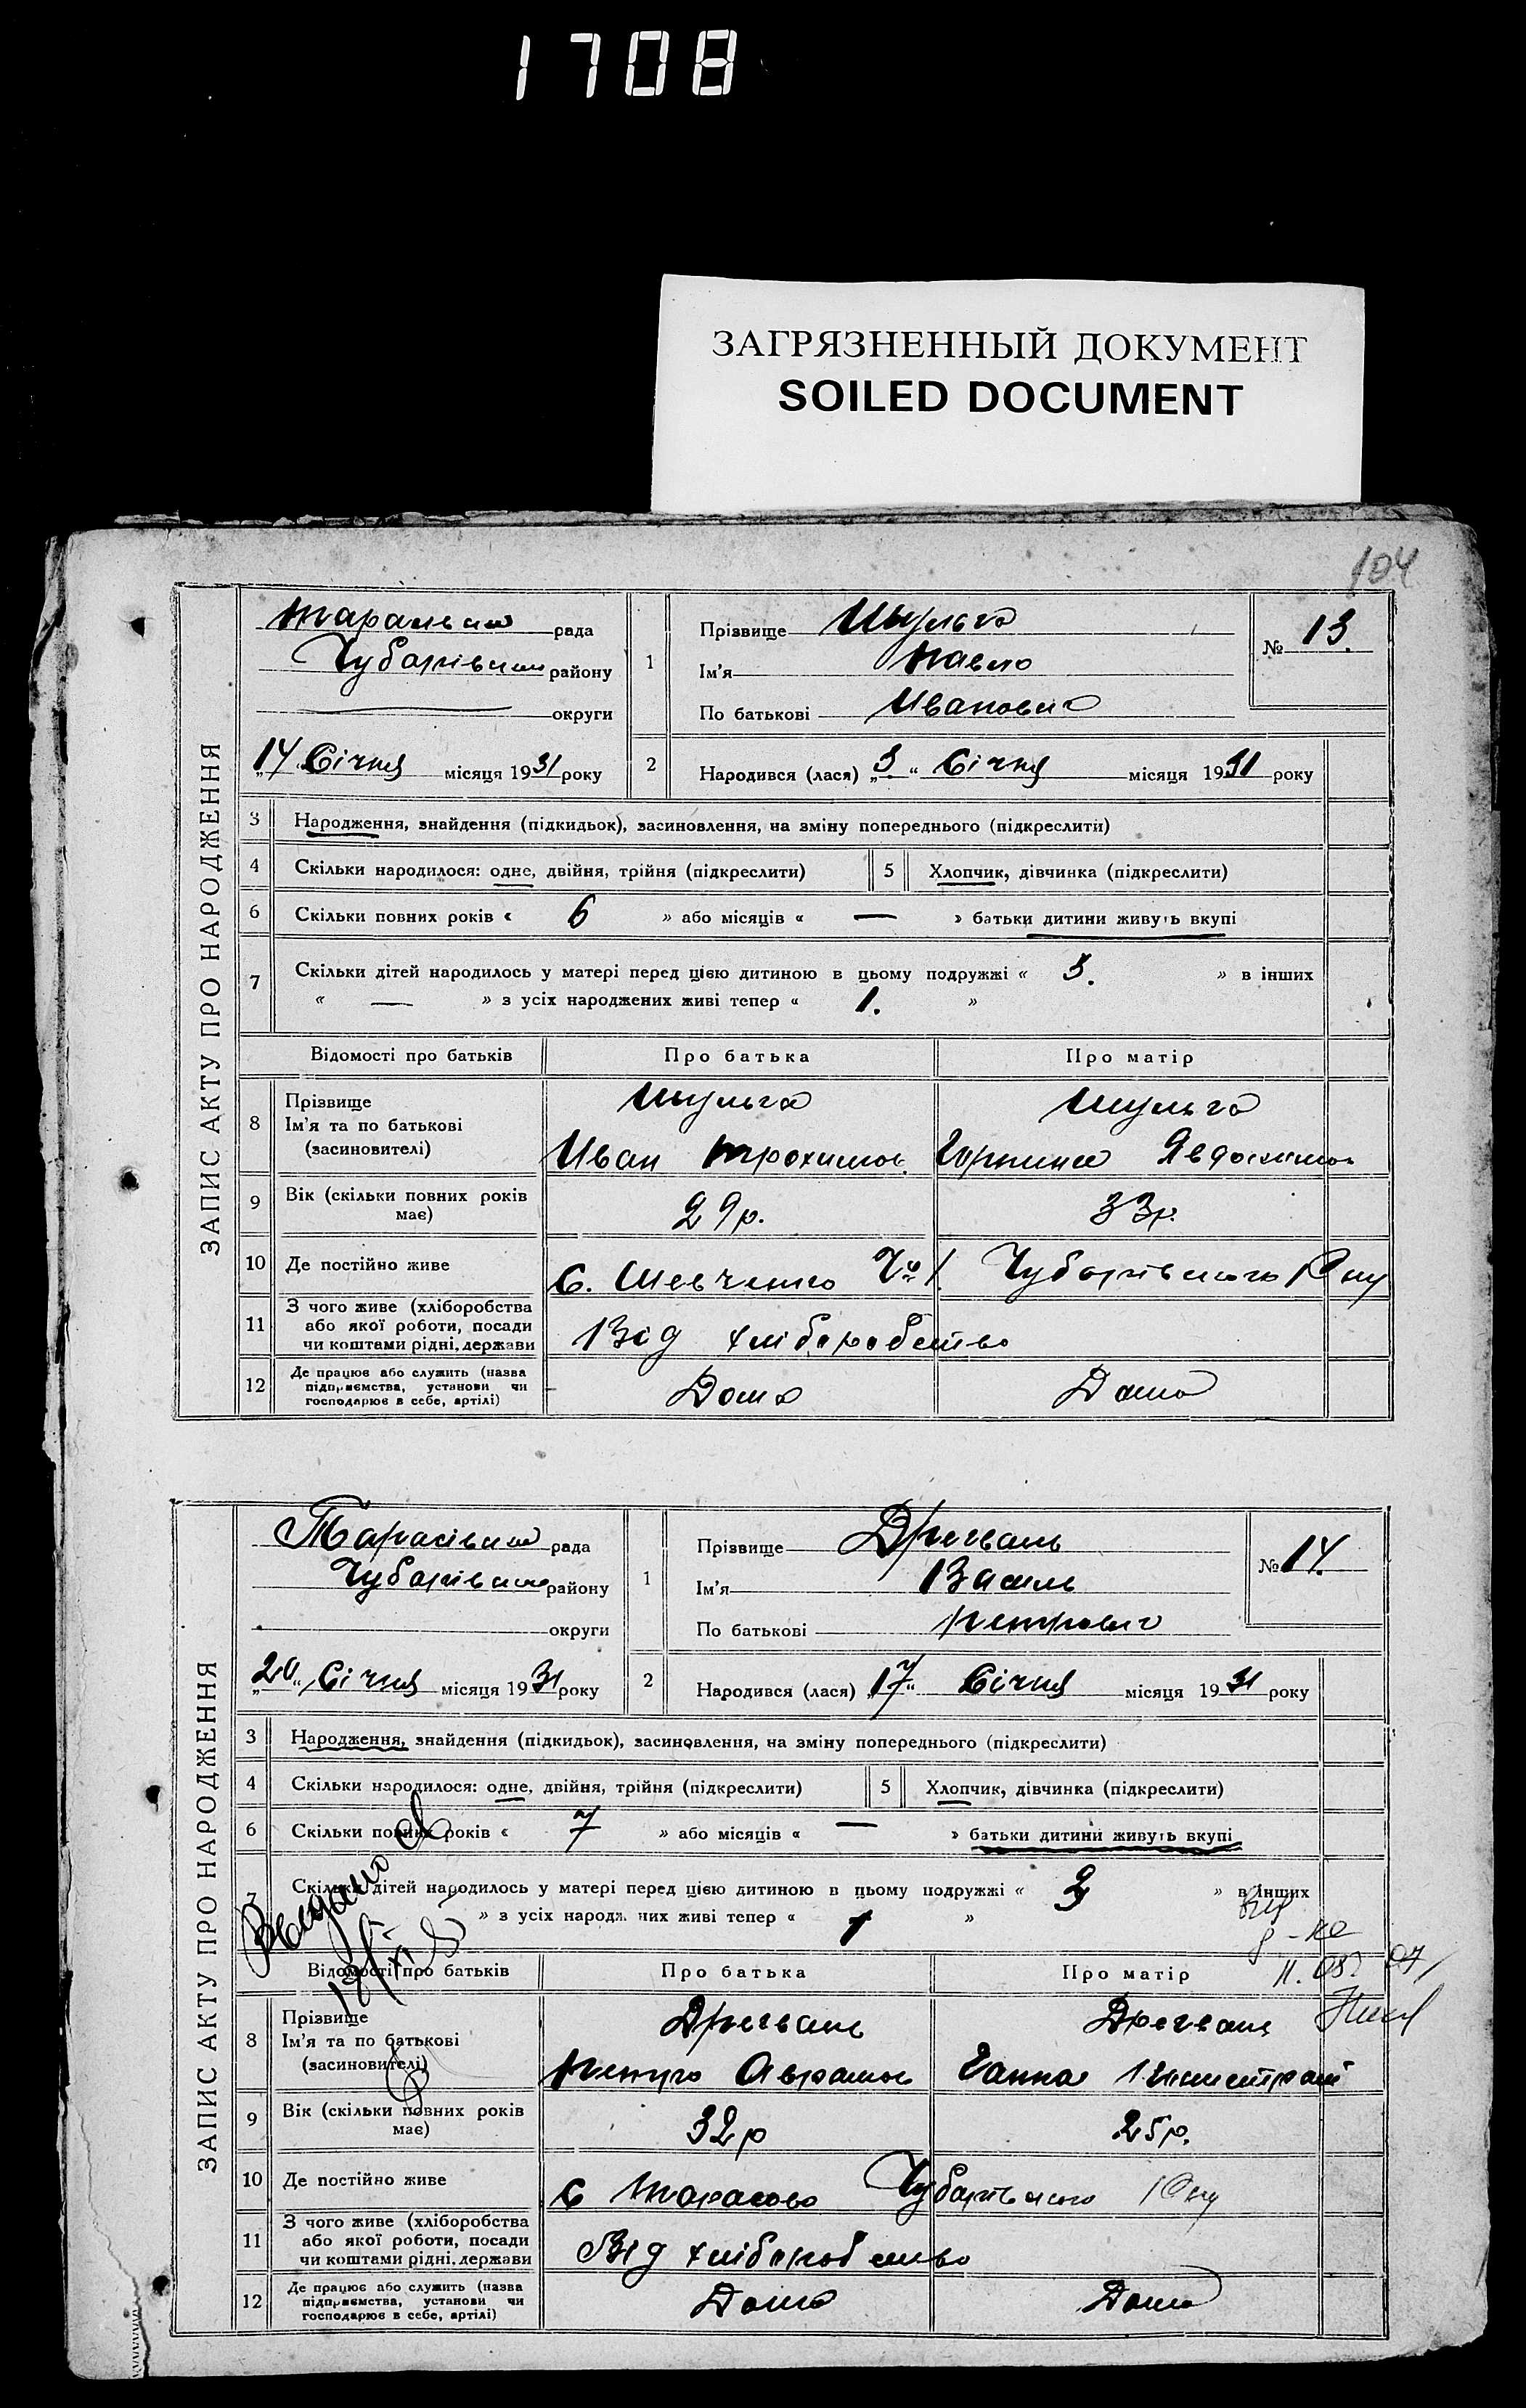 1708
ЗАГРЯЗНЕННЫЙ ДОКУМЕНТ
SOILED DOCUMENT
104
ЗАПИС АКТУ ПРО НАРОДЖЕННЯ
рада
Чубарівський району
округи
„14" Січня місяця 1931 року
1
Прізвище Шульга
Ім'я Павло
По батькові Иванович
№ 13.
2 Народився (лася) „3" Січня місяця 1931 року
3 Народження, знайдення (підкидьок), засиновлення, на зміну попереднього (підкреслити)
4 Скільки народилося: одне, двійня, трійня (підкреслити) 5 Хлопчик, дівчинка (підкреслити)
6 Скільки повних років « 6 » або місяців « — » батьки дитини живуть вкупі
7 Скільки дітей народилось у матері перед цією дитиною в цьому подружжі « 3. » в інших
« — » з усіх народжених живі тепер « 1. »
Відомості про батьків Про батька Про матір
8 Прізвище
Ім'я та по батькові
(засиновителі)
Шульга Шульга
Иван Трохимов. Горпина
9 Вік (скільки повних років
має)
29р. 33р.
10 Де постійно живе С. Шевченко № 1 Чубарівського Р ну
11 З чого живе (хліборобства
або якої роботи, посади
чи коштами рідні, держави
Від хліборобство
12 Де працює або служить (назва
підприємства, установи чи
господарює в себе, артілі)
Дома Дома
ЗАПИС АКТУ ПРО НАРОДЖЕННЯ
Тарасівська рада
Чубарівський району
округи
„20" Січня місяця 1931 року
1
Прізвище Дрегваль
Ім'я Василь
По батькові Петрович
№ 14.
2 Народився (лася) „17" Січня місяця 1931 року
3 Народження, знайдення (підкидьок), засиновлення, на зміну попереднього (підкреслити)
4 Скільки народилося: одне, двійня, трійня (підкреслити) 5 Хлопчик, дівчинка (підкреслити)
6 Скільки повних років « 7 » або місяців « — » батьки дитини живуть вкупі
7 Скільки дітей народилось у матері перед цією дитиною в цьому подружжі « » в інших
» з усіх народжених живі тепер « 1 »
Выдано
Відомості про батьків Про батька Про матір
8 Прізвище
Ім'я та по батькові
(засиновителі)
Дрегваль Дрегваль
Петро Аврамов Ганна
9 Вік (скільки повних років
має)
32р 25р.
10 Де постійно живе С Тарасово Чубарівського Р ну
11 З чого живе (хліборобства
або якої роботи, посади
чи коштами рідні, держави
Від хліборобство
12 Де працює або служить (назва
підприємства, установи чи
господарює в себе, артілі)
Дома Дома